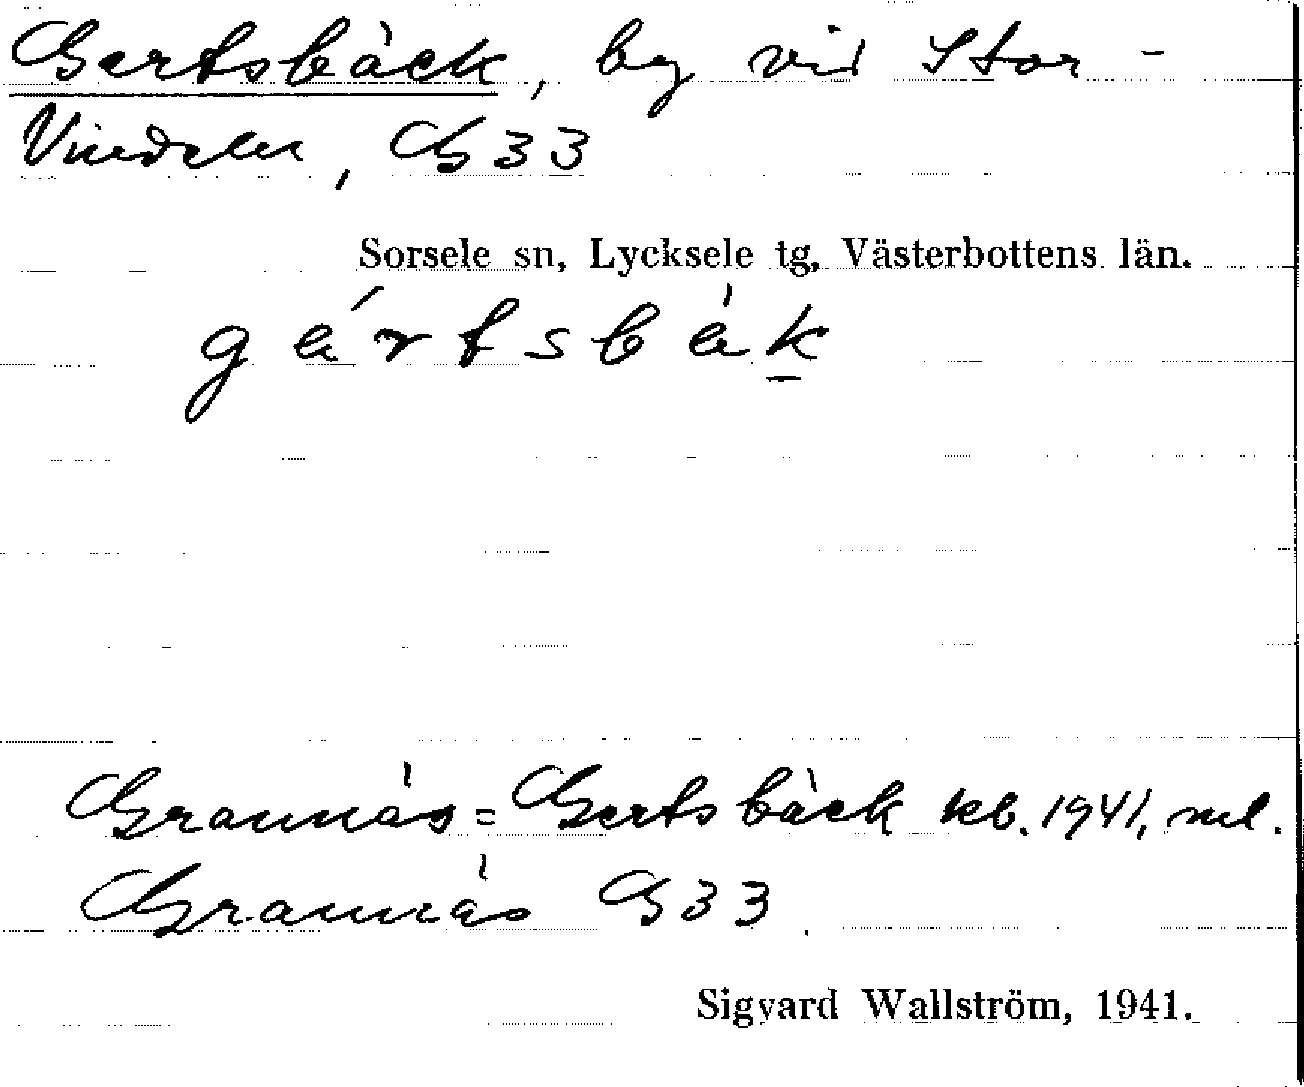 Gertsbäck, by vid Stor-
Vindeln, G 33
Sorsele sn, Lycksele tg, Västerbottens län.
gä́rtsbäk
Grannäs = Gertsbäck kb. 1941, ml.
Grannäs G 33
Sigvard Wallström, 1941.